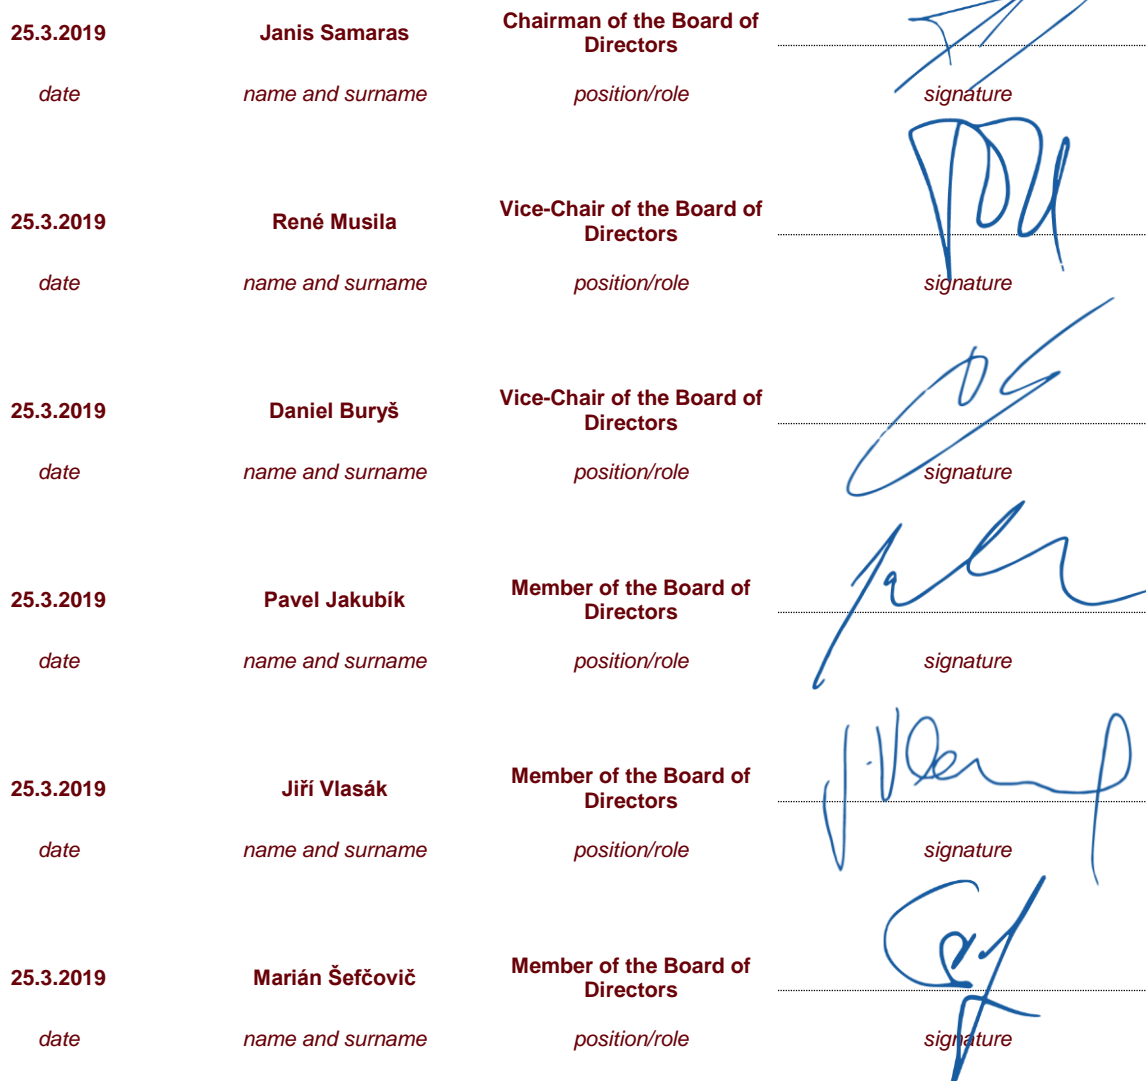 25.3.2019 Janis Samaras Chairman of the Board of
Directors
date name and surname position/role signature
25.3.2019 René Musila Vice-Chair of the Board of
Directors
date name and surname position/role signature
25.3.2019 Daniel Buryš Vice-Chair of the Board of
Directors
date name and surname position/role signature
25.3.2019 Pavel Jakubík Member of the Board of
Directors
date name and surname position/role signature
25.3.2019 Jiří Vlasák Member of the Board of
Directors
date name and surname position/role signature
25.3.2019 Marián Šefčovič Member of the Board of
Directors
date name and surname position/role signature